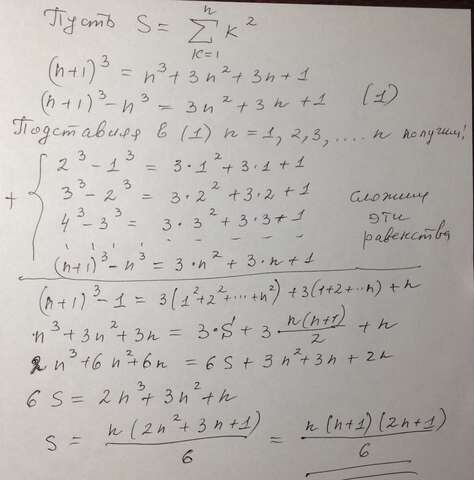 Пусть S = \sum_{k=1}^{n} k^2
(n+1)^3 = n^3 + 3n^2 + 3n + 1
(n+1)^3 - n^3 = 3n^2 + 3n + 1 (1)
Подставляя в (1) n = 1, 2, 3, .... n получим:
2^3 - 1^3 = 3·1^2 + 3·1 + 1
3^3 - 2^3 = 3·2^2 + 3·2 + 1
+ 4^3 - 3^3 = 3·3^2 + 3·3 + 1
(n+1)^3 - n^3 = 3·n^2 + 3·n + 1
сложим
эти
равенства
(n+1)^3 - 1 = 3(1^2+2^2+...+n^2) + 3(1+2+..n) + n
n^3 + 3n^2 + 3n = 3·S + 3·\frac{n(n+1)}{2} + n
2n^3 + 6n^2 + 6n = 6S + 3n^2 + 3n + 2n
6S = 2n^3 + 3n^2 + n
S = \frac{n(2n^2+3n+1)}{6} = \frac{n(n+1)(2n+1)}{6}